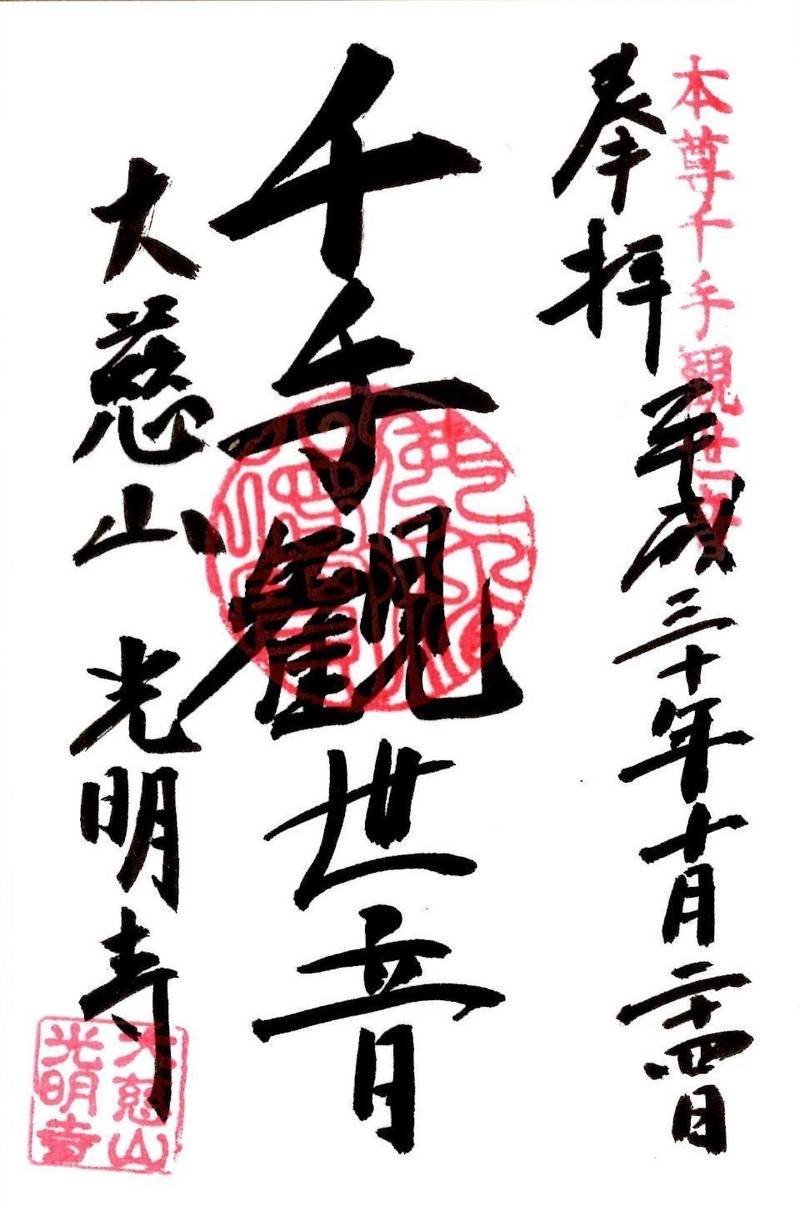 本尊千手観世音
奉拝
平成三十年十月二十四日
千手観世音
大慈山 光明寺
大慈山
光明寺